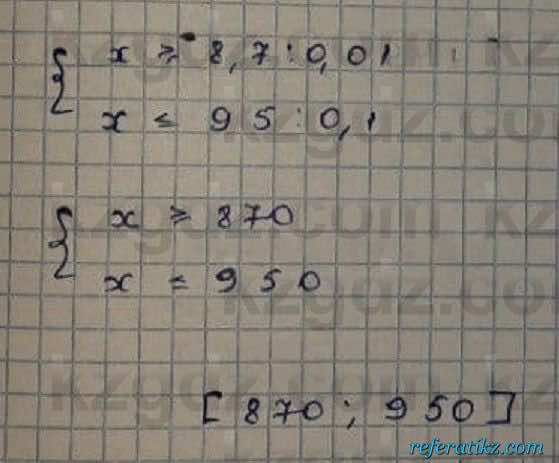 { x ≥ 8,7 : 0,01
x ≤ 95 : 0,1
{ x ≥ 870
x ≤ 950
[870; 950]
referatikz.com